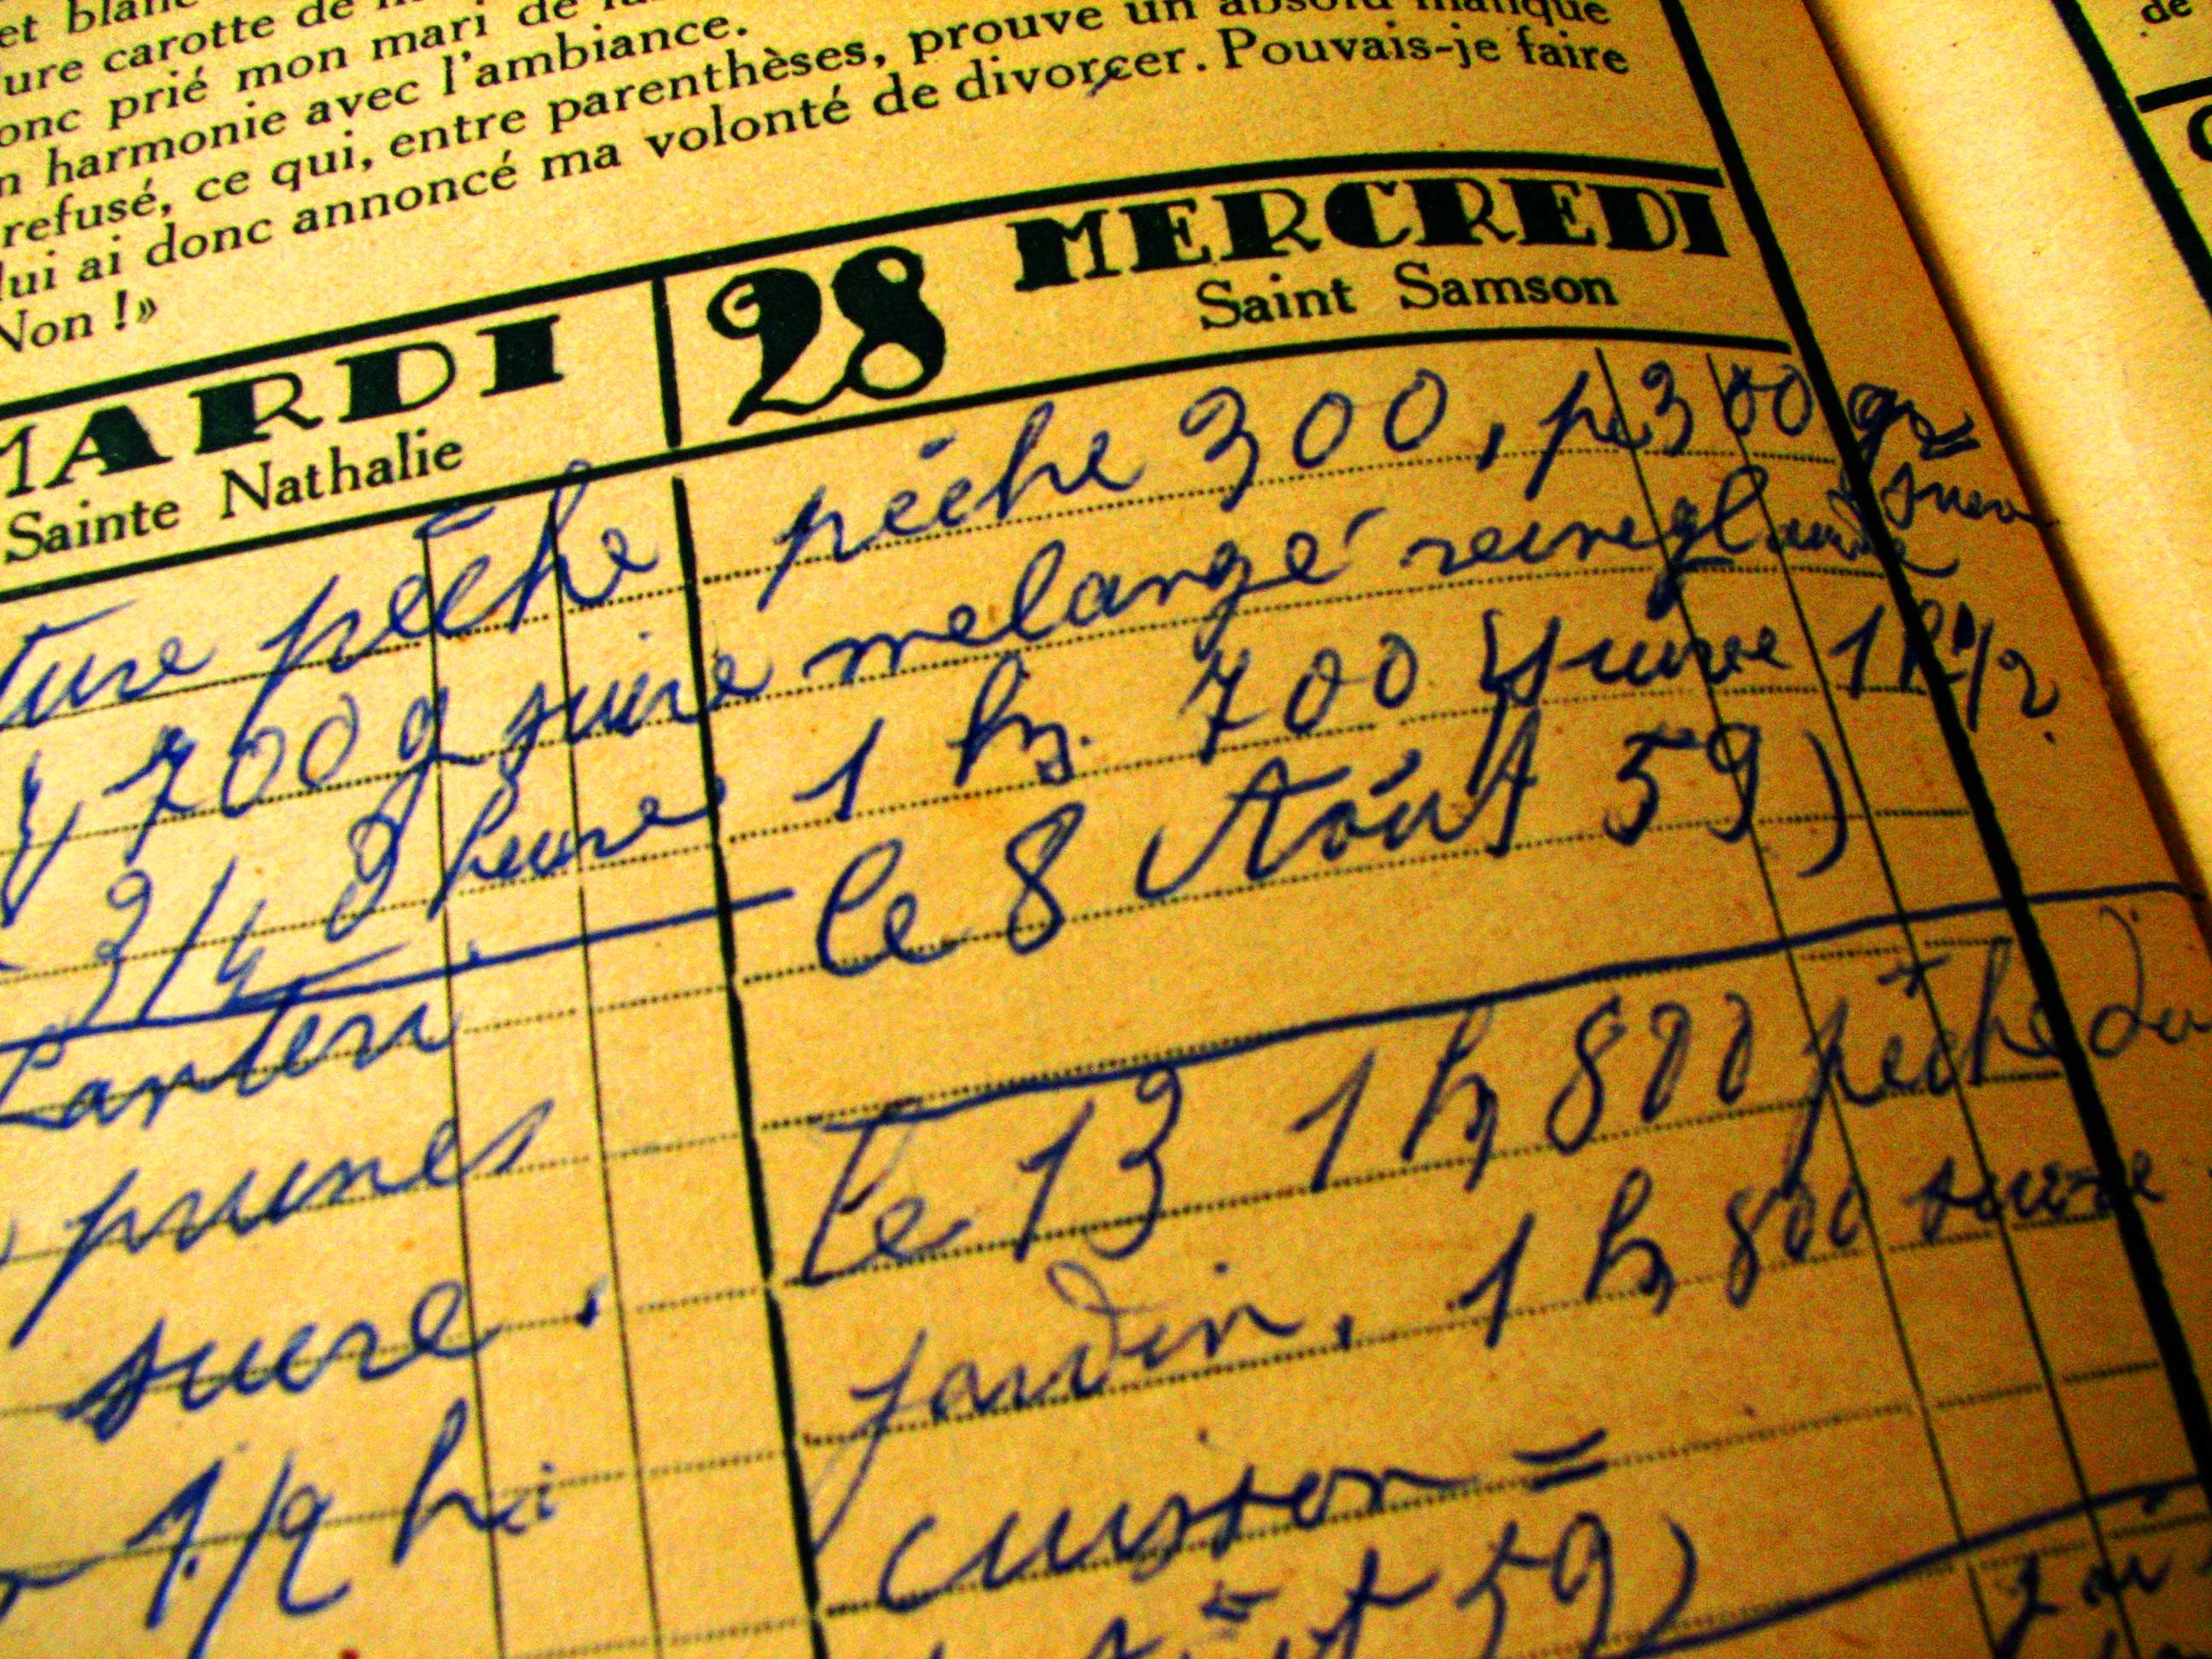 et blanc
ure carotte de
onc prié mon mari de
n harmonie avec l'ambiance.
refusé, ce qui, entre parenthèses, prouve un absolu manque
lui ai donc annoncé ma volonté de divorcer. Pouvais-je faire
Non !»
MARDI
Sainte Nathalie
28 MERCREDI
Saint Samson
ture pêche
700 g sucre
3/4 heure
prunes
sucre.
1/2 h
pêche 300, 300 gr
melangé reineglaude
1 k 700 sucre 1 k 1/2
le 8 Août 59)
Le 13 1 k 800 pêche du
jardin. 1 k 800 sucre
cuisson =
Août 59)
de